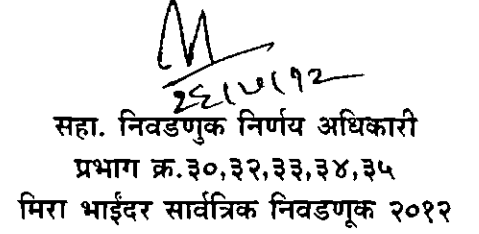 २६/७/१२
सहा. निवडणुक निर्णय अधिकारी
प्रभाग क्र.३०,३२,३३,३४,३५
मिरा भाईंदर सार्वत्रिक निवडणूक २०१२